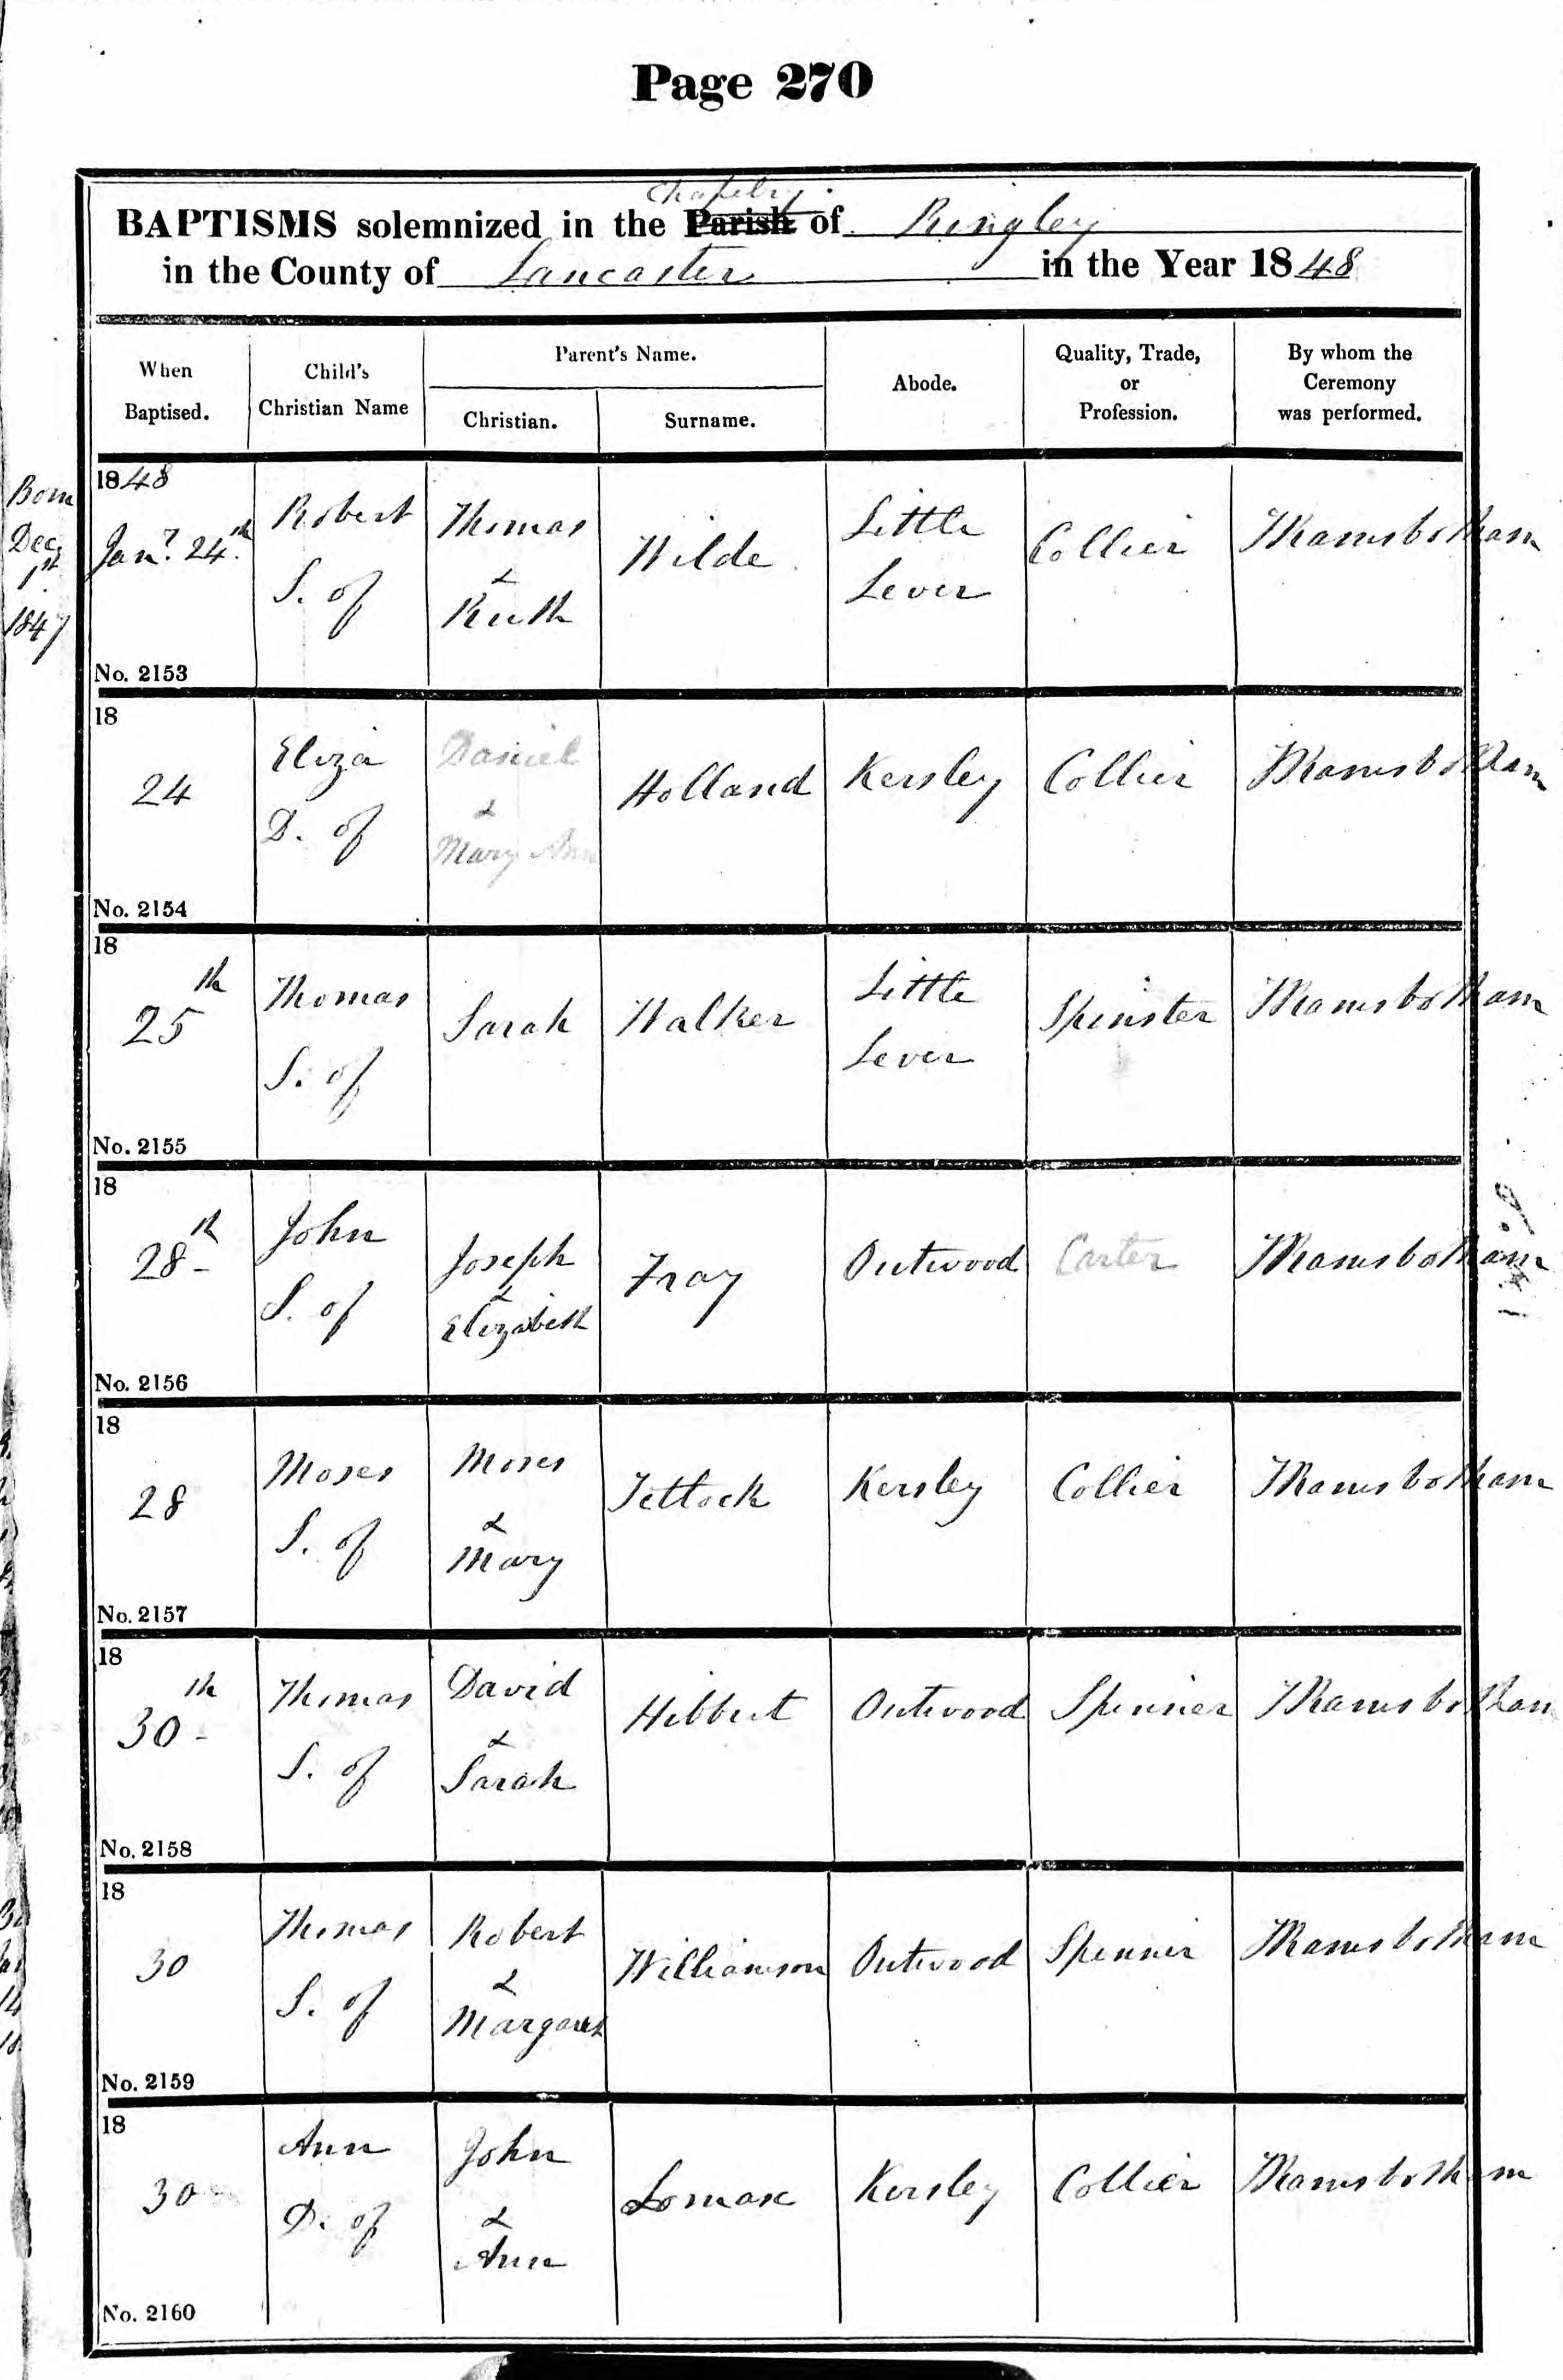 Page 270
Chapelry
BAPTISMS solemnized in the Parish of Ringley
in the County of Lancaster in the Year 1848
When Baptised.
Child's Christian Name
Parent's Name.
Christian.
Surname.
Abode.
Quality, Trade, or Profession.
By whom the Ceremony was performed.
Born
Dec.
1st
1847
1848
Jany. 24th
Robert
S. of
Thomas
&
Ruth
Wilde
Little
Lever
Collier
TRamsbotham
No. 2153
18
24
Eliza
D. of
Daniel
&
Mary Ann
Holland
Kersley
Collier
TRamsbotham
No. 2154
18
25th
Thomas
S. of
Sarah
Walker
Little
Lever
Spinster
TRamsbotham
No. 2155
18
28th
John
S. of
Joseph
&
Elizabeth
Fray
Outwood
Carter
TRamsbotham
No. 2156
18
28
Moses
S. of
Moses
&
Mary
Tetlock
Kersley
Collier
TRamsbotham
No. 2157
18
30th
Thomas
S. of
David
&
Sarah
Hibbert
Outwood
Spinner
TRamsbotham
No. 2158
18
30
Thomas
S. of
Robert
&
Margaret
Williamson
Outwood
Spinner
TRamsbotham
No. 2159
18
30
Ann
D. of
John
&
Ann
Lomax
Kersley
Collier
TRamsbotham
No. 2160